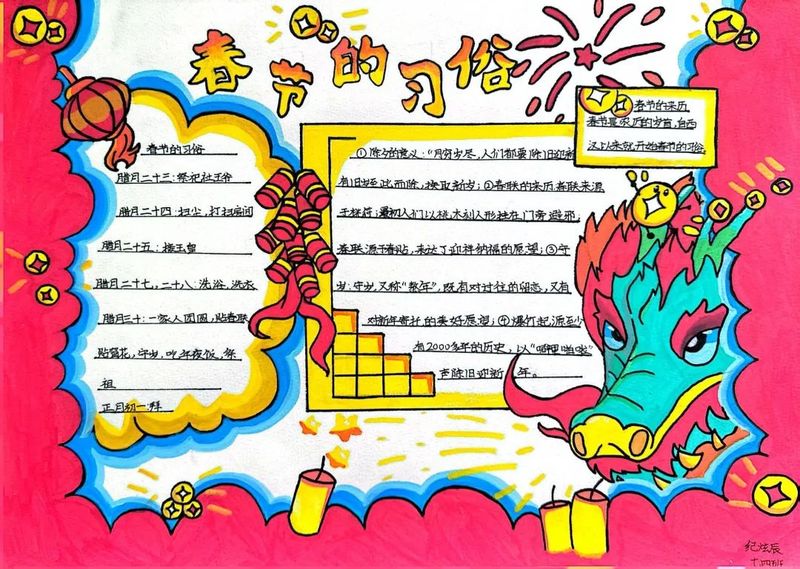 春节的习俗
春节的习俗
腊月二十三:祭祀灶王爷
腊月二十四:扫尘,打扫房间
腊月二十五:接玉皇
腊月二十七,二十八:洗浴,洗衣
腊月三十:一家人团圆,贴春联
贴窗花,守岁,吃年夜饭,祭
祖
正月初一:拜
①除夕的意义:“月穷岁尽,人们都要除旧迎新
有旧岁至此而除,换取新岁;②春联的来历春联来源
于桃符;最初人们以桃木刻人形挂在门旁避邪;
春联源于春贴,表达了迎祥纳福的愿望;③守
岁:守岁,又称“熬年”,既有对过往的留恋,又有
对新年寄托的美好愿望;④爆竹起源至少
有2000多年的历史,以“噼里啪啦”
声除旧迎新年。
春节的来历
春节是农历的岁首,自西
汉以来就开始春节的习俗
纪炫辰